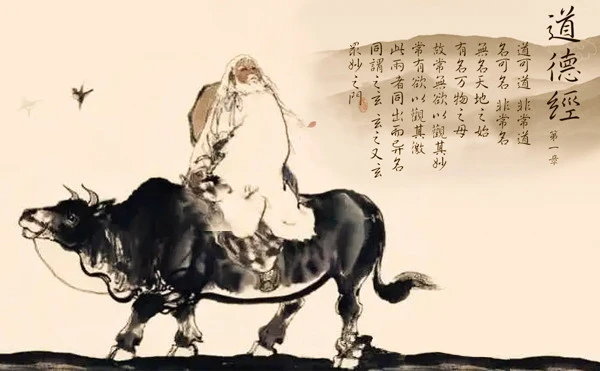 道德經
第一章
道可道 非常道
名可名 非常名
無名天地之始
有名万物之母
故常無欲以觀其妙
常有欲以觀其徼
此兩者同出而异名
同謂之玄 玄之又玄
眾妙之门